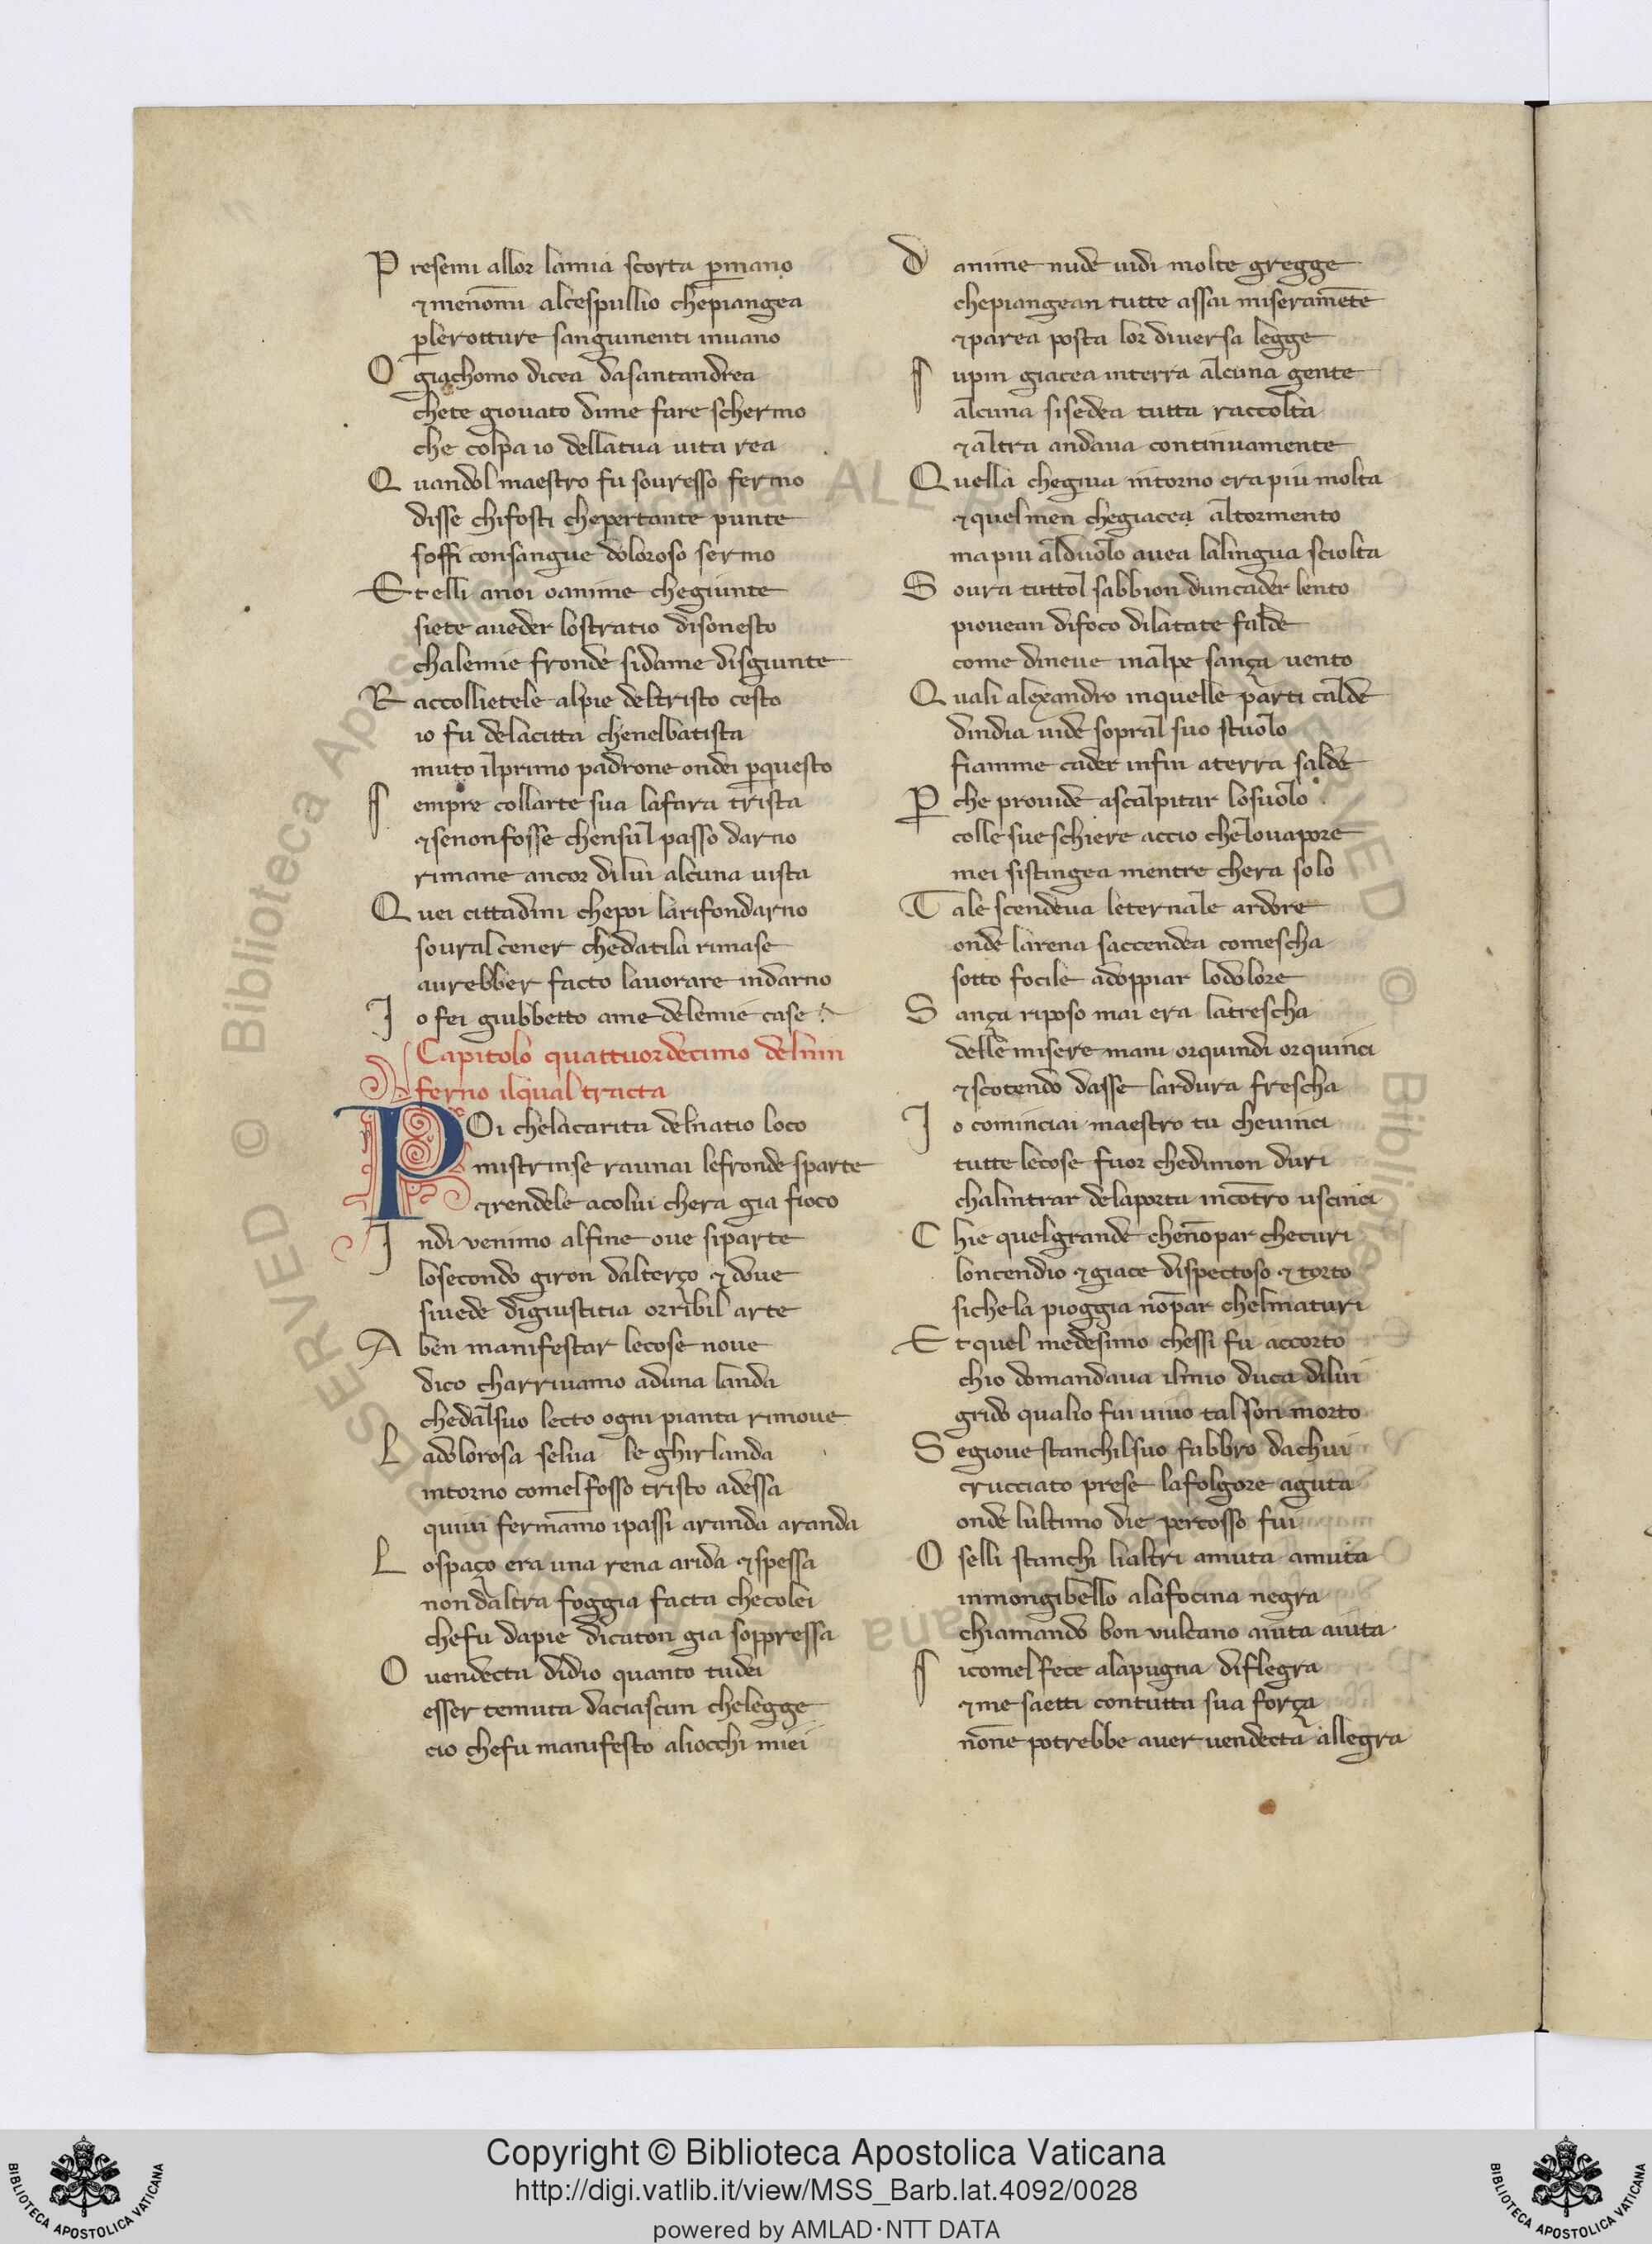 P resemi allor lamia scorta ꝑmano
⁊menōmi alcespullio chepiangea
ꝑlerotture sanguinenti inuano
O giachomo dicea dasantandrea
chete giouato dime fare schermo
che colpa io dellatua uita rea
Q uandol maestro fu souresso fermo
disse chifosti chepertante punte
soffi consangue doloroso sermo
Et elli anoi oanime chegiunte
siete aueder lostratio disonesto
chalemie fronde sidame disgiunte
R accollietele alpie deltristo cesto
io fu delacitta chenelbatista
muto ilprimo padrone ondei ꝑquesto
S empre collarte sua lafara trista
⁊senonfosse chensul passo darno
rimane ancor dilui alcuna uista
Q uei cittadini chepoi larifondarno
soural cener chedatila rimase
aurebber facto lauorare indarno
I o fei giubbetto ame delemie case
Capitolo quattuordecimo delnin
ferno ilqual tracta
POi chelacarita delnatio loco
mistrinse raunai lefronde sparte
⁊rendele acolui chera gia fioco
I ndi venimo alfine oue siparte
losecondo giron dalterço ⁊ doue
siuede digiustitia orribil arte
A ben manifestar lecose noue
dico charriuamo aduna landa
chedalsuo lecto ogni pianta rimoue
L adolorosa selua le ghirlanda
intorno comel fosso tristo adessa
quiui fermāmo ipassi aranda aranda
L ospaço era una rena arida ⁊spessa
nondaltra foggia facta checolei
chefu dapie dicaton gia soppressa
O uendecta didio quanto tudei
esser temuta daciascun chelegge
cio chefu manifesto aliocchi miei
D anime nude uidi molte gregge
chepiangean tutte assai miseramēte
⁊parea posta lor diuersa legge
S upin giacea interra alcuna gente
alcuna sisedea tutta raccolta
⁊altra andaua continuamente
Q uella chegiua intorno era piu molta
⁊quelmen chegiacea altormento
mapiu alduolo auea lalingua sciolta
S oura tuttol sabbion duncader lento
piouean difoco dilatate falde
come dineue inalpe sança uento
Q uali alexandro inquelle parti calde
dindia uide sopral suo stuolo
fiamme cader infin aterra salde
P che prouide ascalpitar losuolo
colle sueschiere accio chelouapore
mei sistingea mentre chera solo
T ale scendeua leternale ardore
onde larena saccendea comescha
sotto focile adoppiar lodolore
S ança riposo mai era latrescha
delle misere mani orquindi orquinci
⁊scotendo dasse lardura frescha
I o cominciai maestro tu cheuinci
tutte lecose fuor chedimon duri
chalintrar delaporta incōtro uscinci
C hie quelgrande chenōpar checuri
loncendio ⁊giace dispectoso ⁊ torto
sichela pioggia nōpar chelmaturi
E t quel medesimo chessi fu accorto
chio domandaua ilmio duca dilui
grido qualio fui uiuo tal son morto
S egioue stanchilsuo fabbro dachui
crucciato prese lafolgore aguta
onde lultimo die percosso fui
O selli stanchi lialtri amuta amuta
inmongibello alafocina negra
chiamando bon vulcano aiuta aiuta
S icomel fece alapugna diflegra
⁊me saetti contutta sua força
nōne potrebbe auer uendecta allegra
Copyright © Biblioteca Apostolica Vaticana
http://digi.vatlib.it/view/MSS_Barb.lat.4092/0028
powered by AMLAD·NTT DATA
BIBLIOTECA APOSTOLICA VATICANA
BIBLIOTECA APOSTOLICA VATICANA